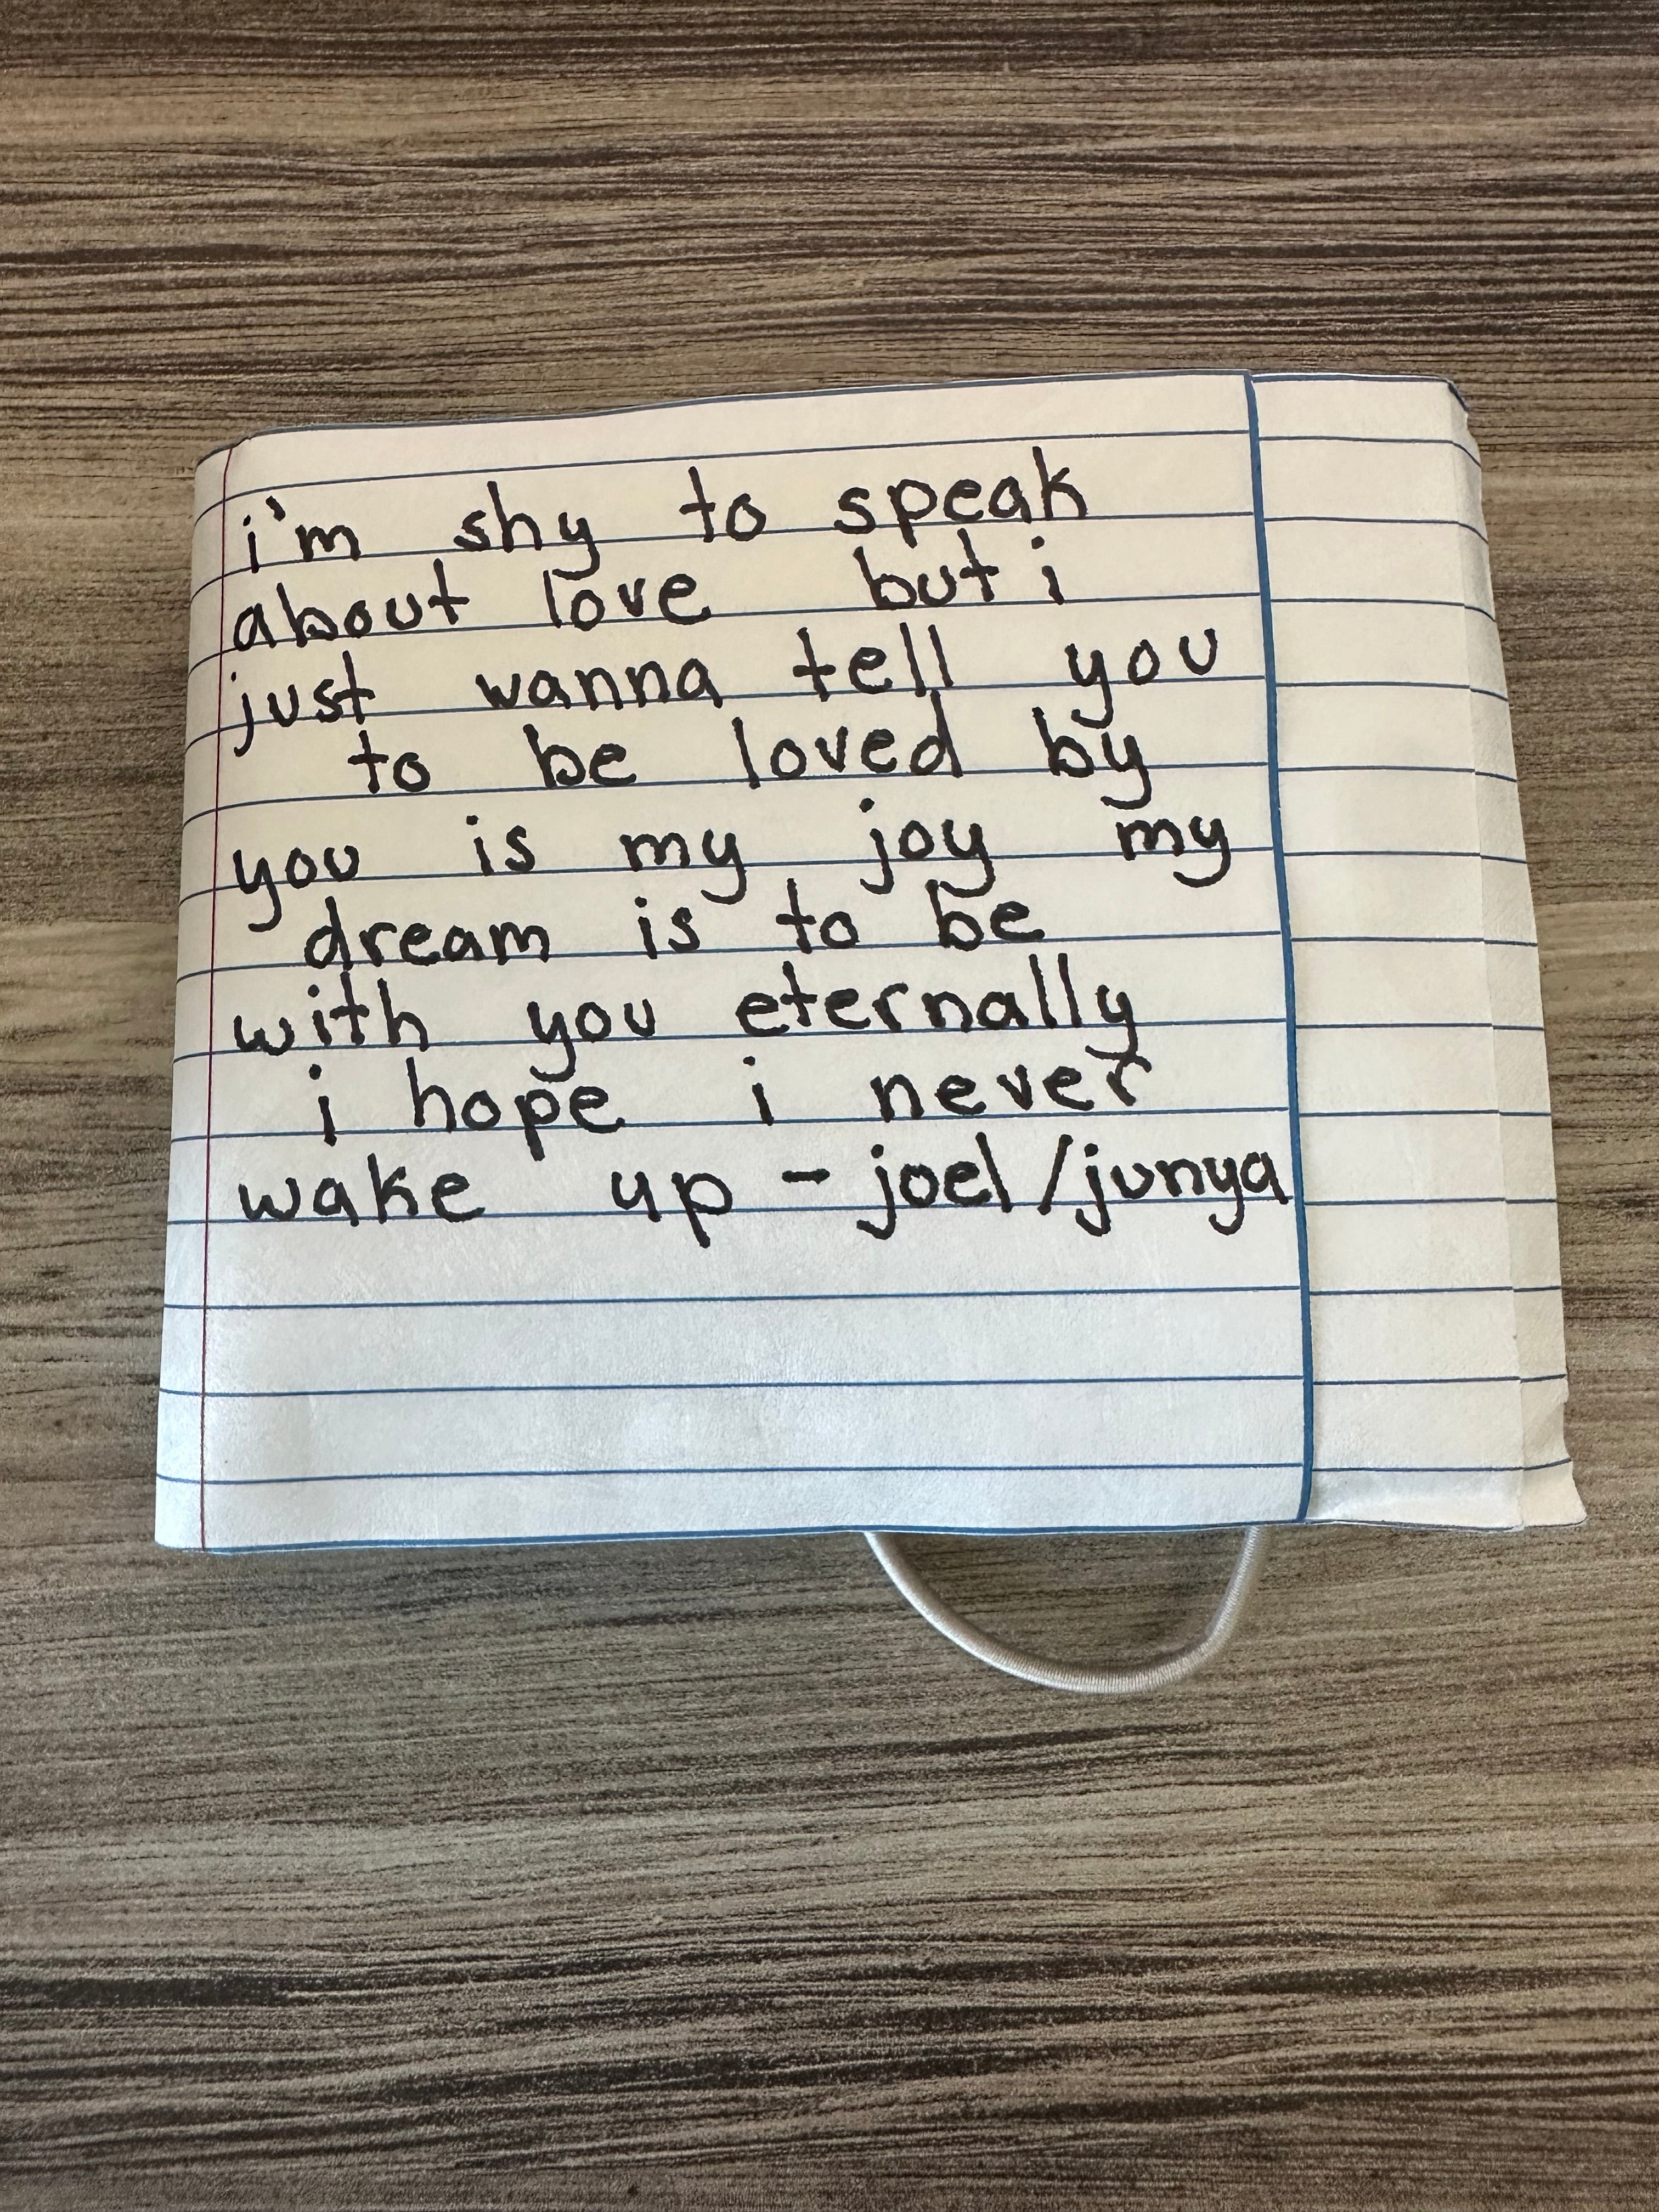 i'm shy to speak
about love but i
just wanna tell you
to be loved by
you is my joy my
dream is to be
with you eternally
i hope i never
wake up - joel/junya